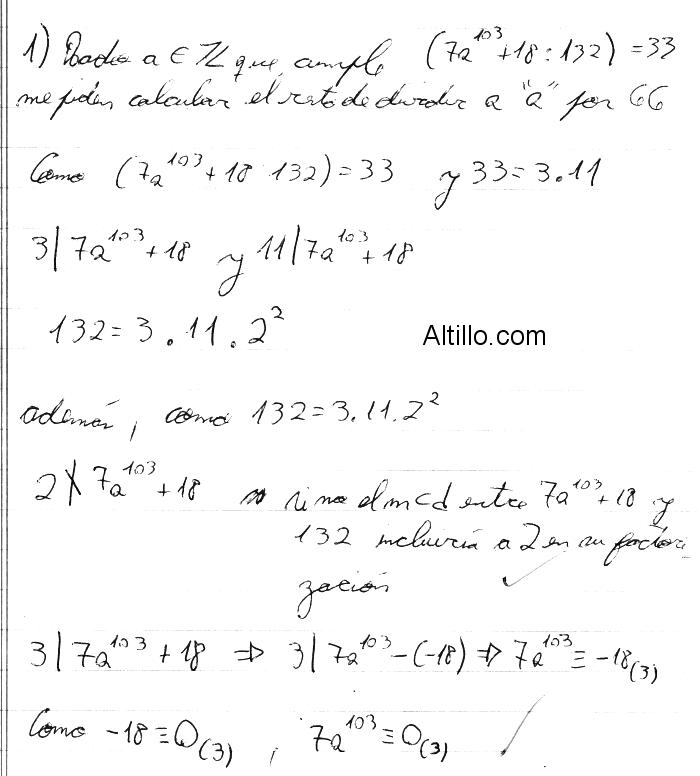 1) Dado a ∈ ℤ que cumple (7a¹⁰³+18 : 132) = 33
me piden calcular el resto de dividir a "a" por 66
Como (7a¹⁰³+18 132) = 33 y 33 = 3.11
3 | 7a¹⁰³+18 y 11 | 7a¹⁰³+18
132 = 3 . 11 . 2²
Altillo.com
además, como 132 = 3.11.2²
2 ∤ 7a¹⁰³+18 si no el mcd entre 7a¹⁰³+18 y
132 incluiría a 2 en su factori
zación
3 | 7a¹⁰³+18 ⇒ 3 | 7a¹⁰³-(-18) ⇒ 7a¹⁰³ ≡ -18 (3)
Como -18 ≡ 0 (3) , 7a¹⁰³ ≡ 0 (3)